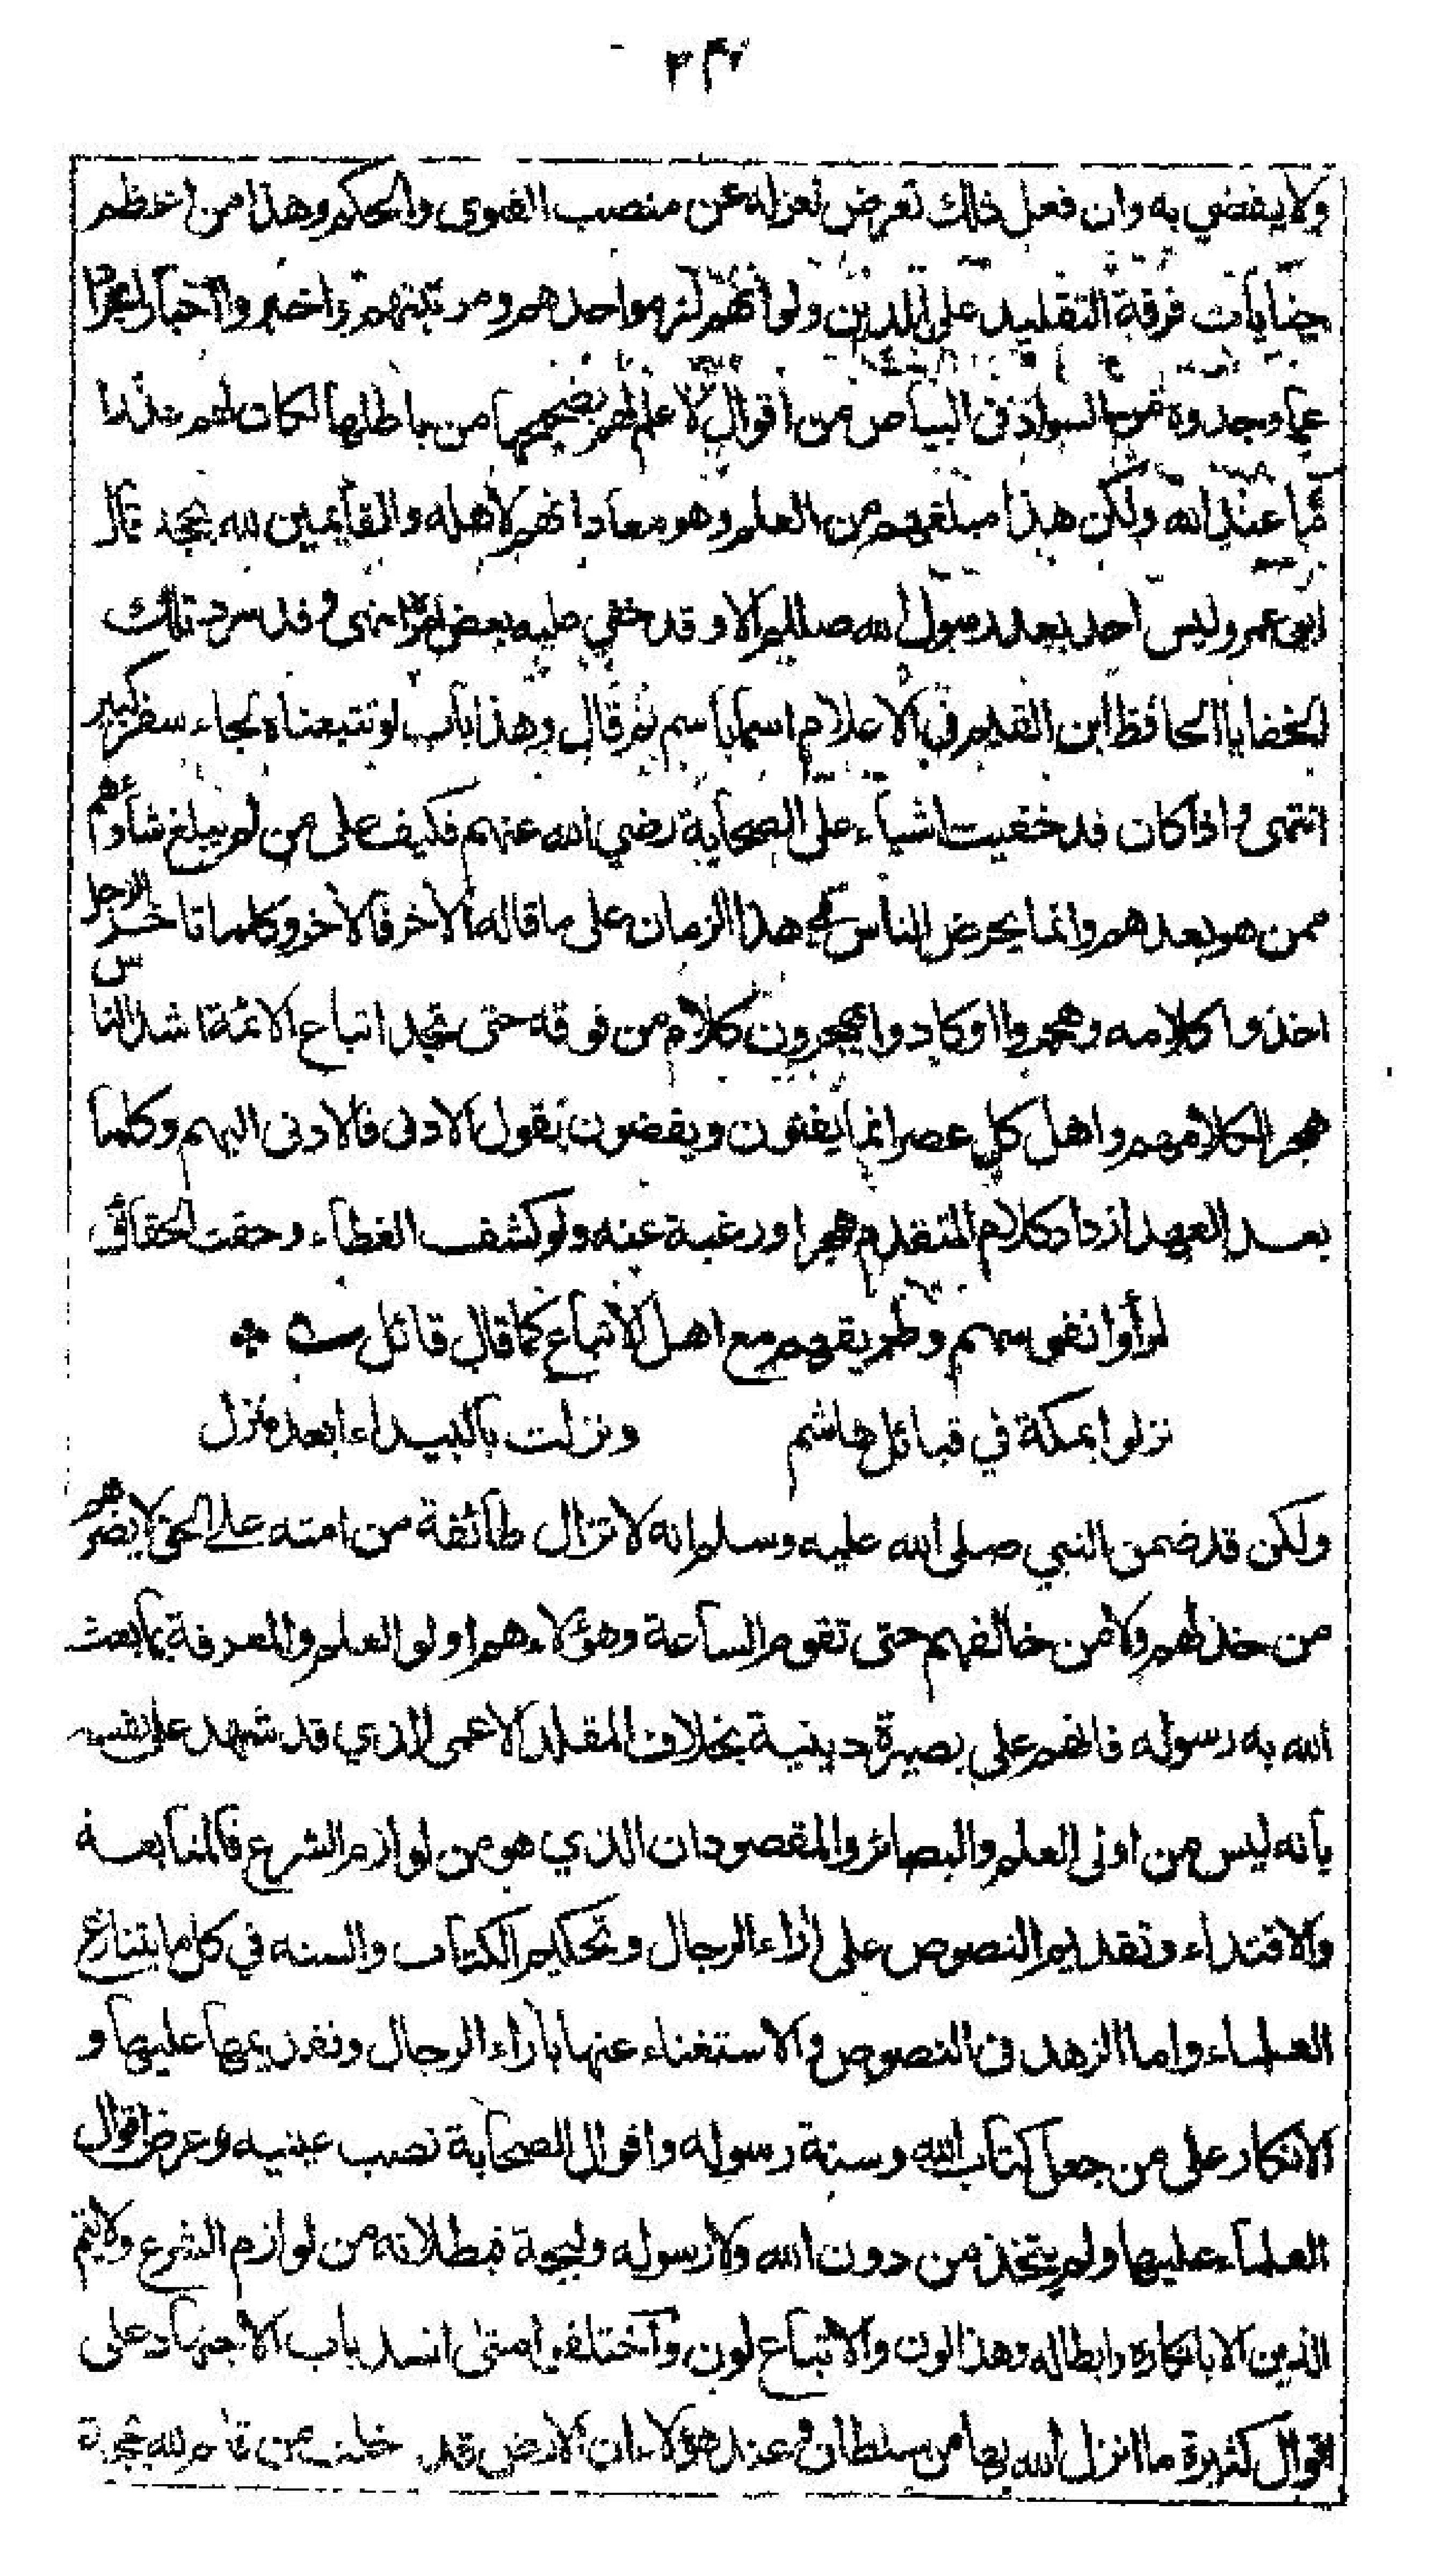 ولا يفضي به وان فعل ذلك تعرض لعزله عن منصب الفتوى والحكم وهذا من اعظم
جنايات فرقة التقليد على الدين ولو انهم لزموا حدهم ومرتبتهم واخبروا اخبارا مجردا
عما وجدوه من السواد في البياض من اقوال لا علم لهم بصحيحها من باطلها لكان لهم عذر ما
عند الله ولكن هذا مبلغهم من العلم وهو معاداتهم لاهله والقائمين لله بحججه قال
ابو عمر وليس احد بعد رسول الله صللم الا وقد خفي عليه بعض امره انتهى وقد سرد تلك
الخفايا الحافظ ابن القيم في الاعلام اسما باسم ثم قال وهذا باب لو تتبعناه لجاء سفر كبير
انتهى واذا كان قد خفيت اشياء على الصحابة رضي الله عنهم فكيف على من لم يبلغ شأوهم
ممن هو بعدهم وانما يحرض الناس في هذا الزمان على ما قاله الآخر فالآخر وكلما تاخر الرجل
اخذوا كلامه وهجروا او كادوا يهجرون كلام من فوقه حتى تجد اتباع الائمة اشد الناس
هجرا لكلامهم واهل كل عصر انما يفتون ويقضون بقول الادنى فالادنى اليهم وكلما
بعد العهد ازداد كلام المتقدم هجرا ورغبة عنه ولو كشف الغطاء وحقت الحقائق
لرأوا نفوسهم وطريقهم مع اهل الاتباع كما قال قائل ؎
نزلوا بمكة في قبائل هاشم ونزلت بالبيداء ابعد منزل
ولكن قد ضمن النبي صلى الله عليه وسلم انه لا تزال طائفة من امته على الحق لا يضرهم
من خذلهم ولا من خالفهم حتى تقوم الساعة وهؤلاء هم اولو العلم والمعرفة بما بعث
الله به رسوله فانهم على بصيرة دينية بخلاف المقلد الاعمى الذي قد شهد على نفسه
بأنه ليس من اولى العلم والبصائر والمقصود ان الذي هو من لوازم الشرع فالمتابعة
والاقتداء وتقديم النصوص على اراء الرجال وتحكيم الكتاب والسنه في كل ما يتنازع
العلماء واما الزهد في النصوص والاستغناء عنها باراء الرجال وتقديمها عليها و
الانكار على من جعل كتاب الله وسنة رسوله واقوال الصحابة نصب عينيه وعرض اقوال
العلماء عليها ولم يتخذ من دون الله ولا رسوله وليجة فبطلانه من لوازم الشرع ولا يتم
الدين الا بانكاره وابطاله فهذا لون والاتباع لون واختلفوا متى انسد باب الاجتهاد على
اقوال كثيرة ما انزل الله بها من سلطان وعند هؤلاء ان الارض قد خلت من قائم لله بحجة